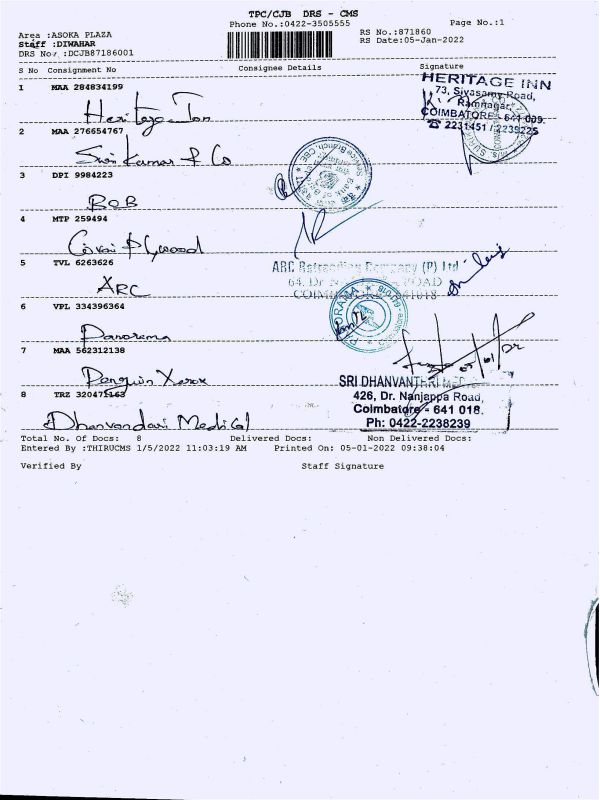 TPC/CJB DRS - CMS
Phone No.:0422-3505555
Page No.:1
Area :ASOKA PLAZA
RS No.:871860
Staff :DIWAHAR
RS Date:05-Jan-2022
DRS No. :DCJB87186001
S No Consignment No Consignee Details Signature
HERITAGE INN
73, Sivasamy Road,
Ramnagar,
COIMBATORE - 641 009.
☎ 2231451 / 2239225
1 MAA 284834199
Heritage Inn
2 MAA 276654767
Sri Kumar & Co
3 DPI 9984223
BOB
4 MTP 259494
Covai Plywood
5 TVL 6263626
ARC Retreading Company (P) Ltd
64, Dr ROAD
COIMBATORE 641018
ARC
6 VPL 334396364
PANORAMA
Panorema
7 MAA 562312138
Penguin Xerox
05/01/22
8 TRZ 320471163
SRI DHANVANTHRI
426, Dr. Nanjappa Road,
Coimbatore - 641 018.
Ph: 0422-2238239
Dhanvandari Medical
Total No. Of Docs: 8 Delivered Docs: Non Delivered Docs:
Entered By :THIRUCMS 1/5/2022 11:03:19 AM Printed On: 05-01-2022 09:38:04
Verified By Staff Signature